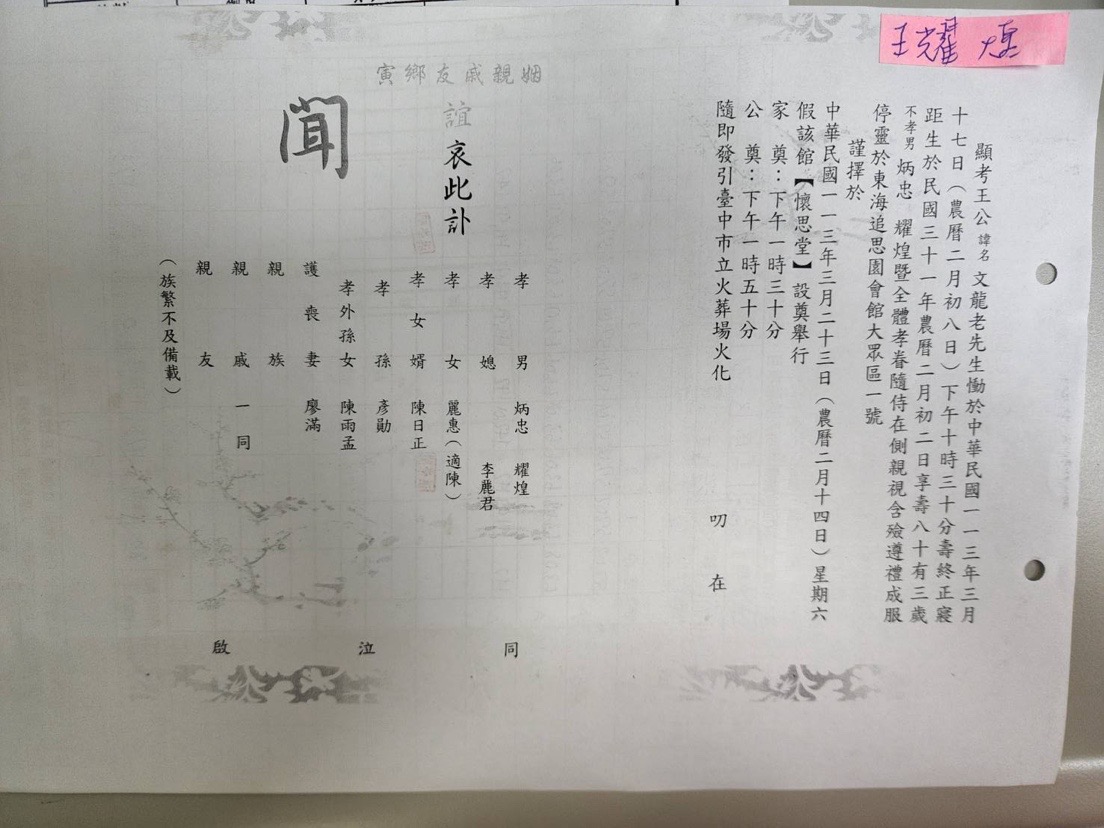 王耀煌
顯考王公諱名文龍老先生慟於中華民國一一三年三月
十七日（農曆二月初八日）下午十時三十分壽終正寢
距生於民國三十一年農曆二月初二日享壽八十有三歲
不孝男炳忠 耀煌暨全體孝眷隨侍在側親視含殮遵禮成服
停靈於東海追思園會館大眾區一號
謹擇於
中華民國一一三年三月二十三日（農曆二月十四日）星期六
假該館【懷思堂】設奠舉行
家 奠：下午一時三十分
公 奠：下午一時五十分
隨即發引臺中市立火葬場火化
叨 在
姻親戚友鄉寅
誼 哀此訃
聞
孝 男 炳忠 耀煌
孝 媳 李麗君
孝 女 麗惠（適陳）
孝 女 婿 陳日正
孝 孫 彥勛
孝外孫女 陳雨孟
護 喪 妻 廖滿
親 族
親 戚 一 同
親 友
（族繁不及備載）
同 泣 啟